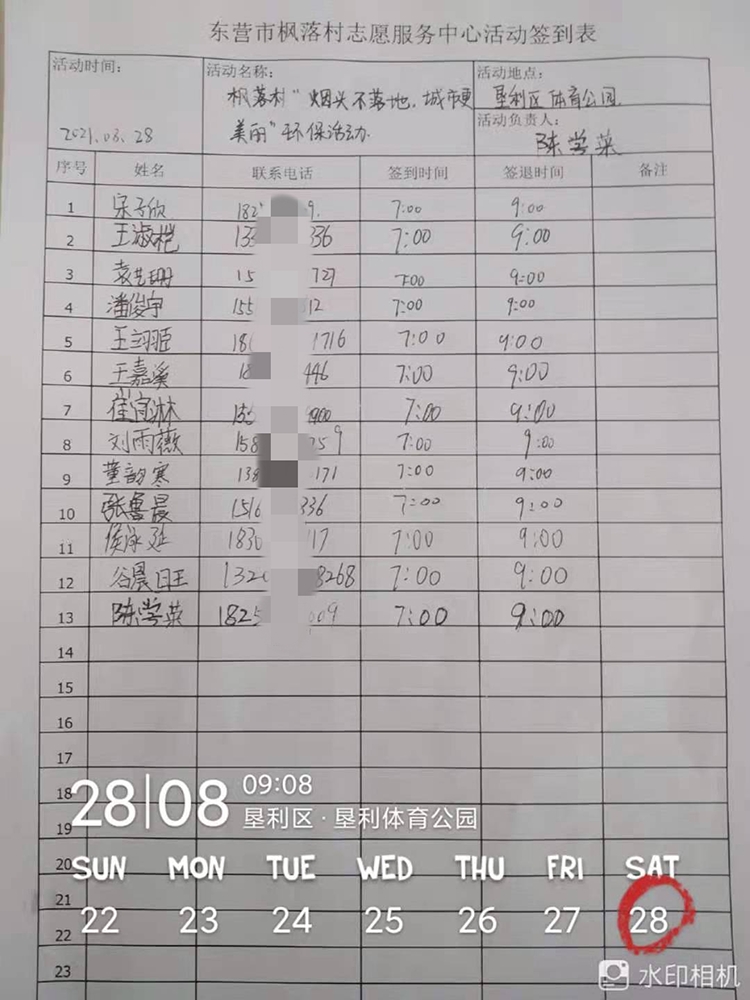 东营市枫落村志愿服务中心活动签到表
活动时间: 活动名称: 活动地点:
枫落村"烟头不落地,城市更 垦利区体育公园
美丽"环保活动 活动负责人:
2021.08.28 陈学菜
序号 姓名 联系电话 签到时间 签退时间 备注
1 宋子欣 182 9. 7:00 9:00
2 王淑桤 133 336 7:00 9:00
3 袁艺珊 15 727 7:00 9:00
4 潘俊宇 155 12 7:00 9:00
5 王翊臣 18 1716 7:00 9:00
6 王嘉溪 18 446 7:00 9:00
7 崔宜淋 155 900 7:00 9:00
8 刘雨薇 158 759 7:00 9:00
9 董韵寒 138 171 7:00 9:00
10 张鲁晨 1516 336 7:00 9:00
11 侯泳延 1830 17 7:00 9:00
12 谷晨日王 132 8268 7:00 9:00
13 陈学菜 1825 009 7:00 9:00
14
15
16
17
18
28|08 09:08
垦利区·垦利体育公园
19
20
SUN MON TUE WED THU FRI SAT
21
22 23 24 25 26 27 28
22
23
水印相机